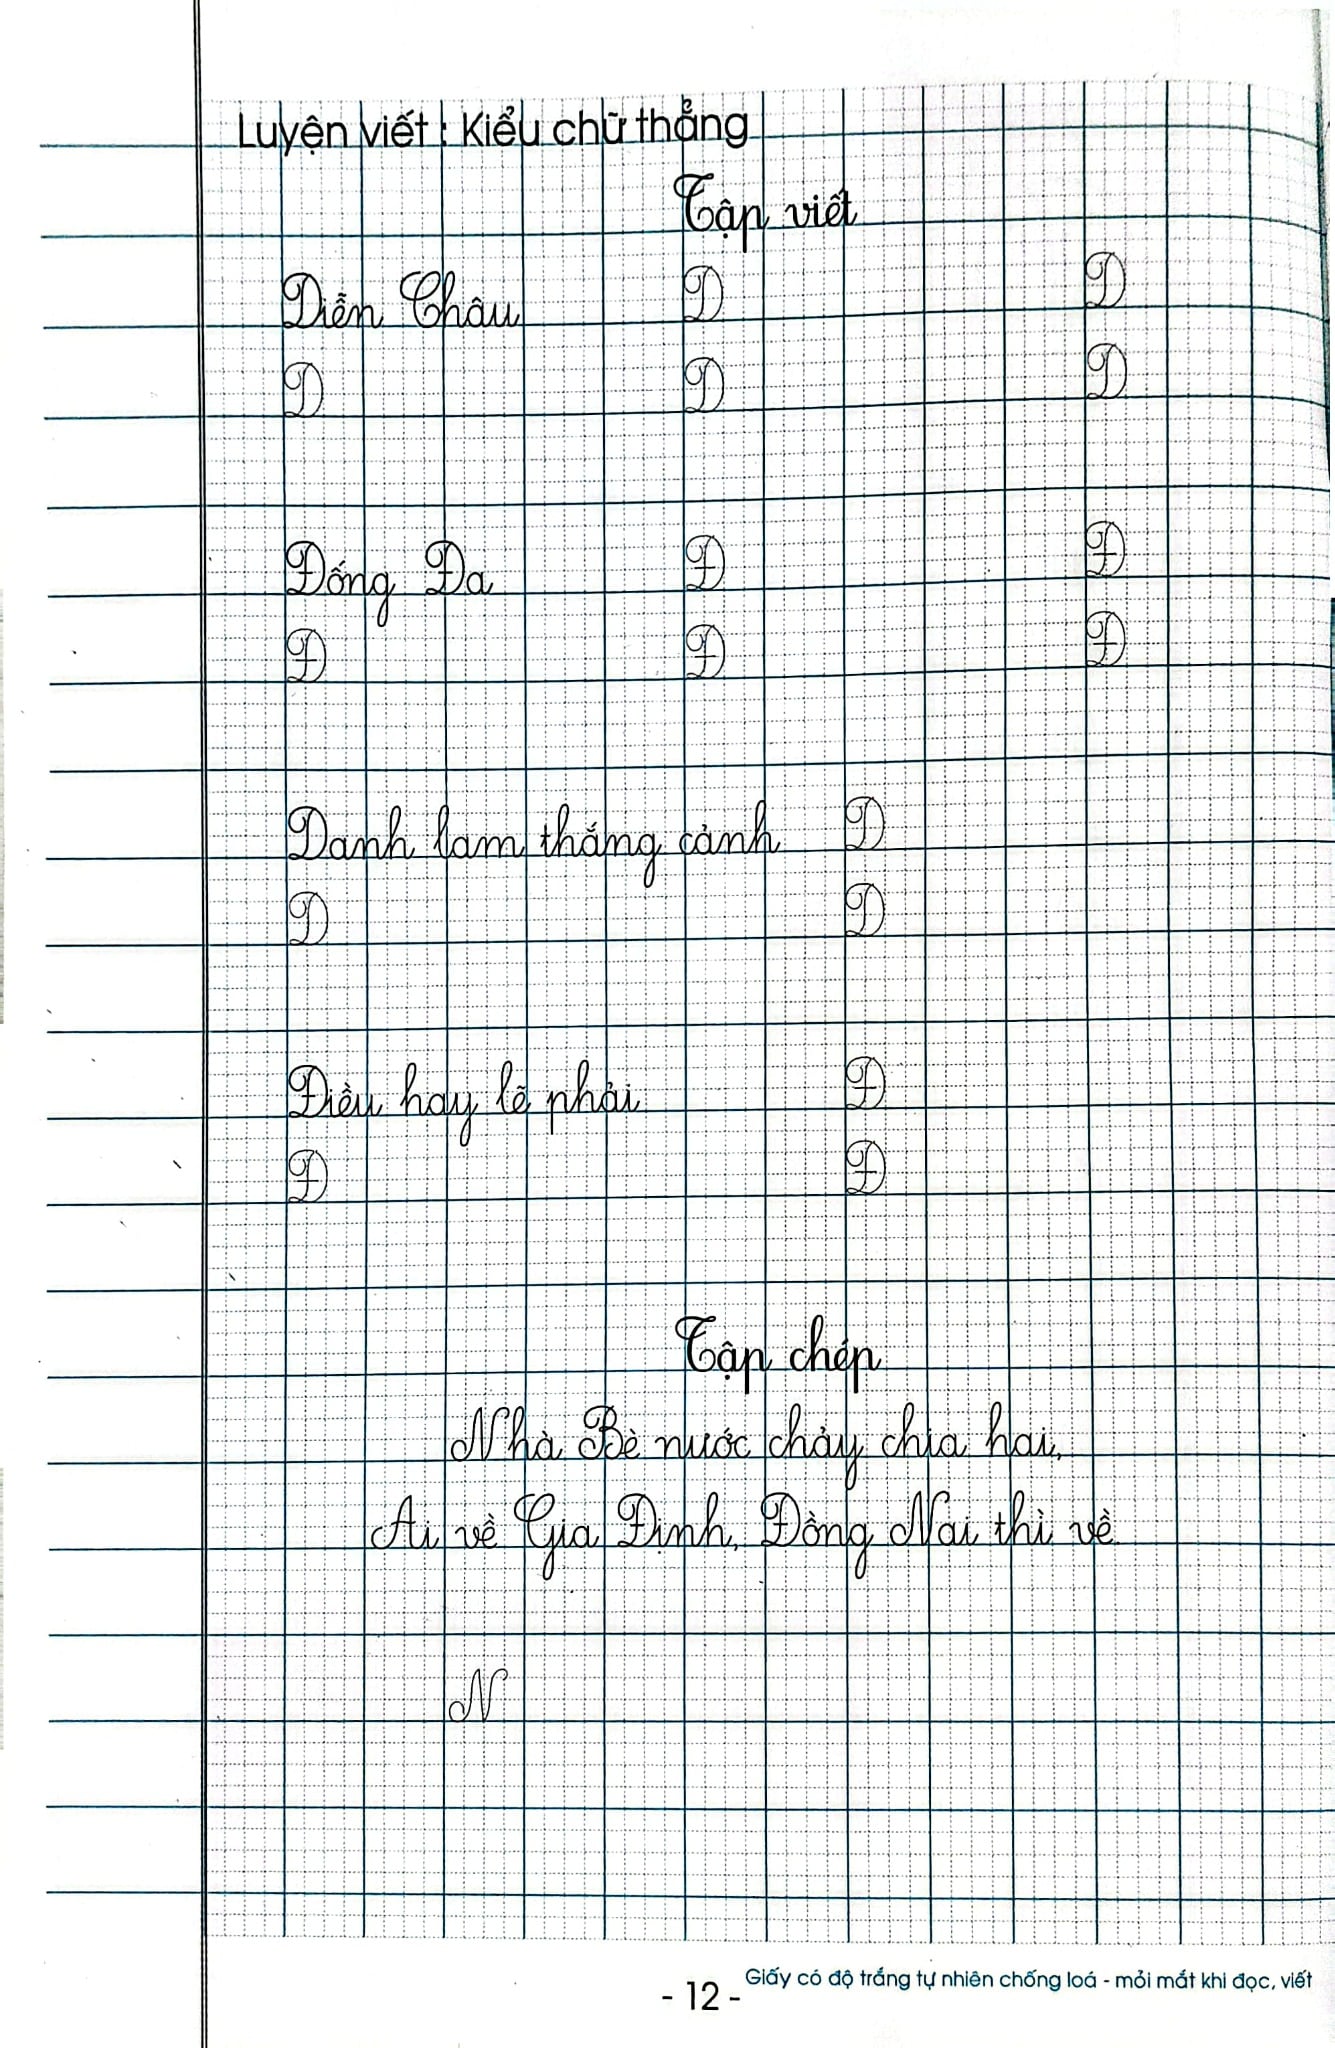 Luyện viết : Kiểu chữ thẳng
Tập viết
Diễn Châu D D
D D D
Đống Đa Đ Đ
Đ Đ Đ
Danh lam thắng cảnh D
D D
Điều hay lẽ phải Đ
Đ Đ
Tập chép
Nhà Bè nước chảy chia hai,
Ai về Gia Định, Đồng Nai thì về.
N
Giấy có độ trắng tự nhiên chống loá - mỏi mắt khi đọc, viết
- 12 -